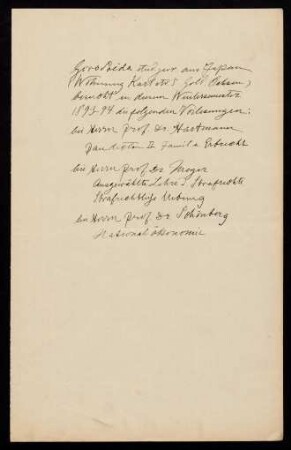 Goro Shida studiosus aus Japan
Wohnung Karlstr. 5 Gottl. Oehrn,
besucht in diesem Wintersemester
1893-94 die folgenden Vorlesungen:
bei Herrn Prof. Dr. Hartmann
Pandekten II Familie Erbrecht
bei Herrn Prof. Dr. Seeger
Ausgewählte Lehre d. Strafrechts
Strafrechtliche Uebung
bei Herrn Prof. Dr. Schönberg
Nationalökonomie